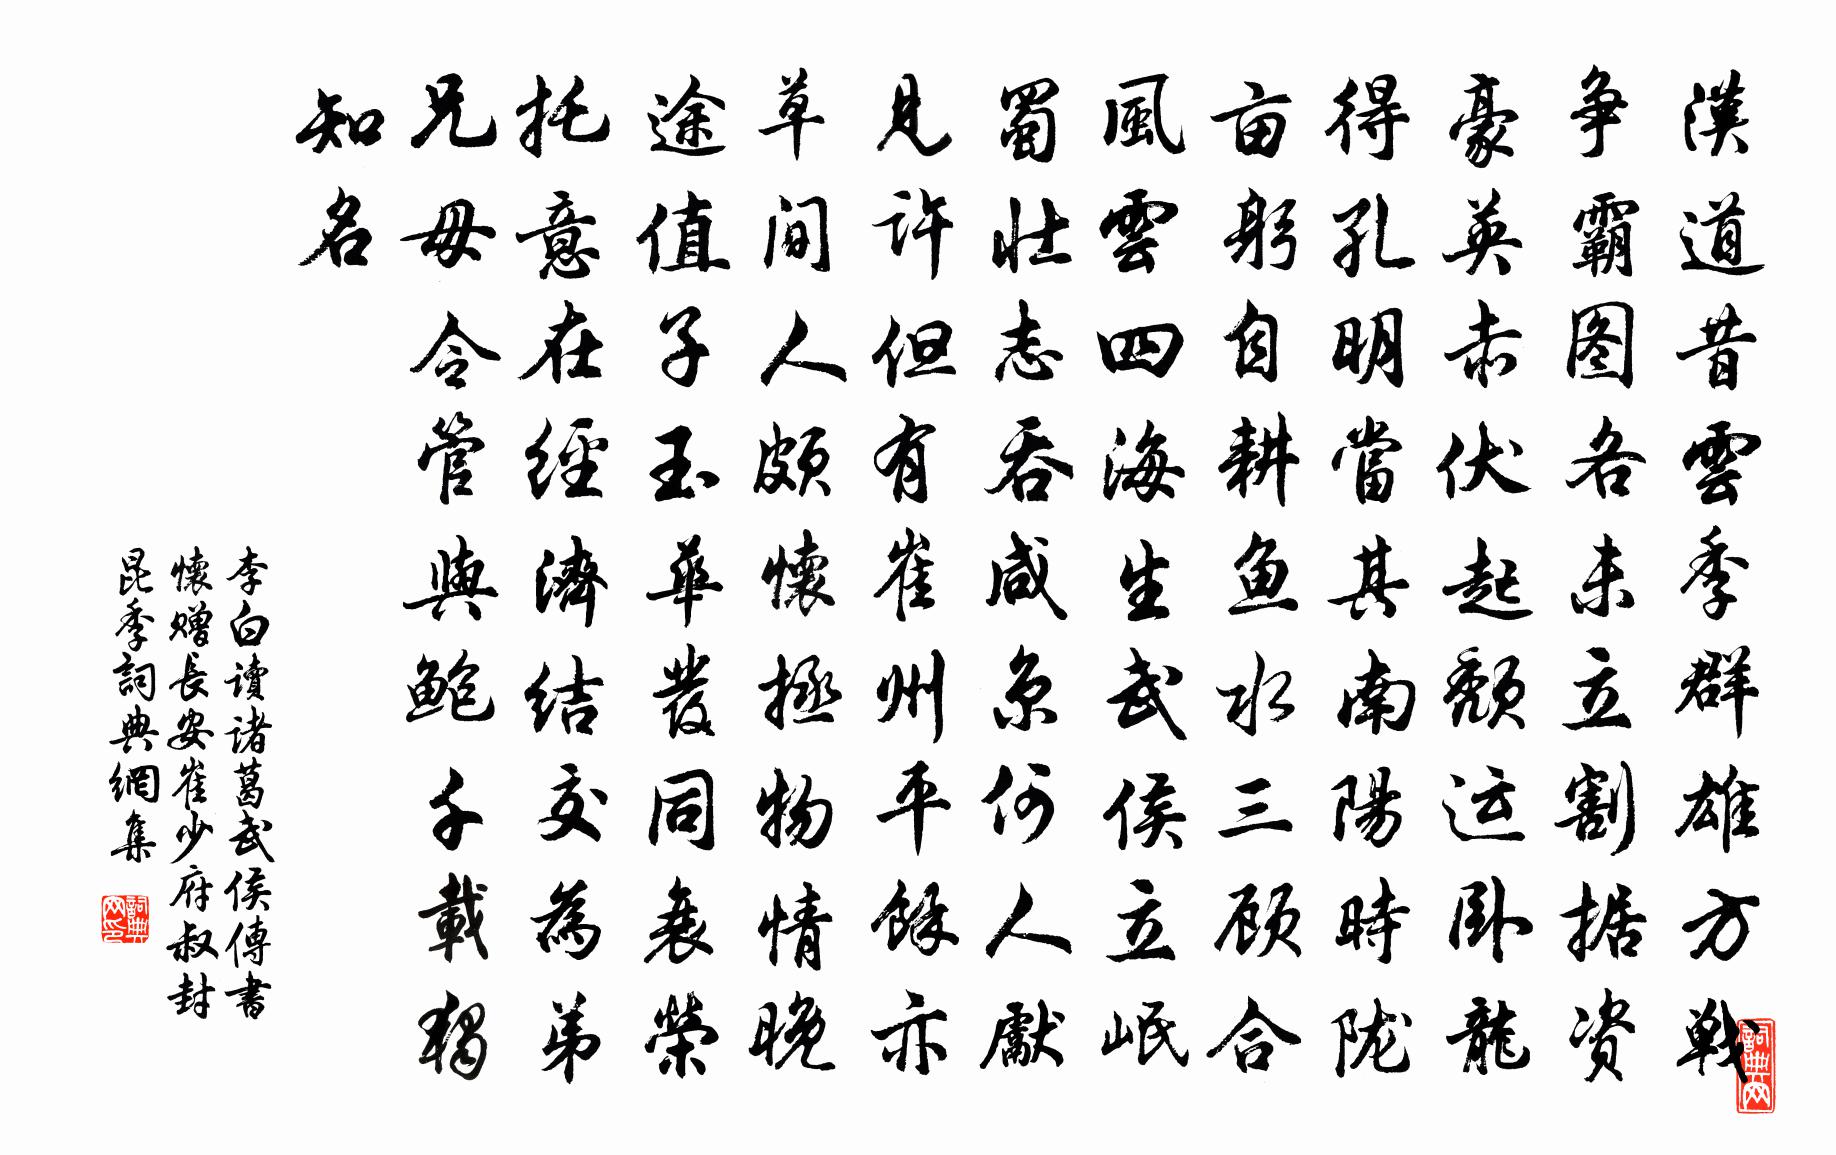 漢道昔雲季群雄方戰
争霸图各未立割据资
豪英赤伏起颓运卧龍
得孔明當其南陽時陇
亩躬自耕鱼水三顾合
風雲四海生武侯立岷
蜀壮志吞咸京何人獻
見许但有崔州平餘亦
草间人颇懷拯物情晚
途值子玉華發同衰榮
托意在經濟结交為弟
兄毋令管與鲍千載獨
知名
李白讀诸葛武侯傳書
懷赠長安崔少府叔封
昆季詞典網集
詞典网印
詞典网